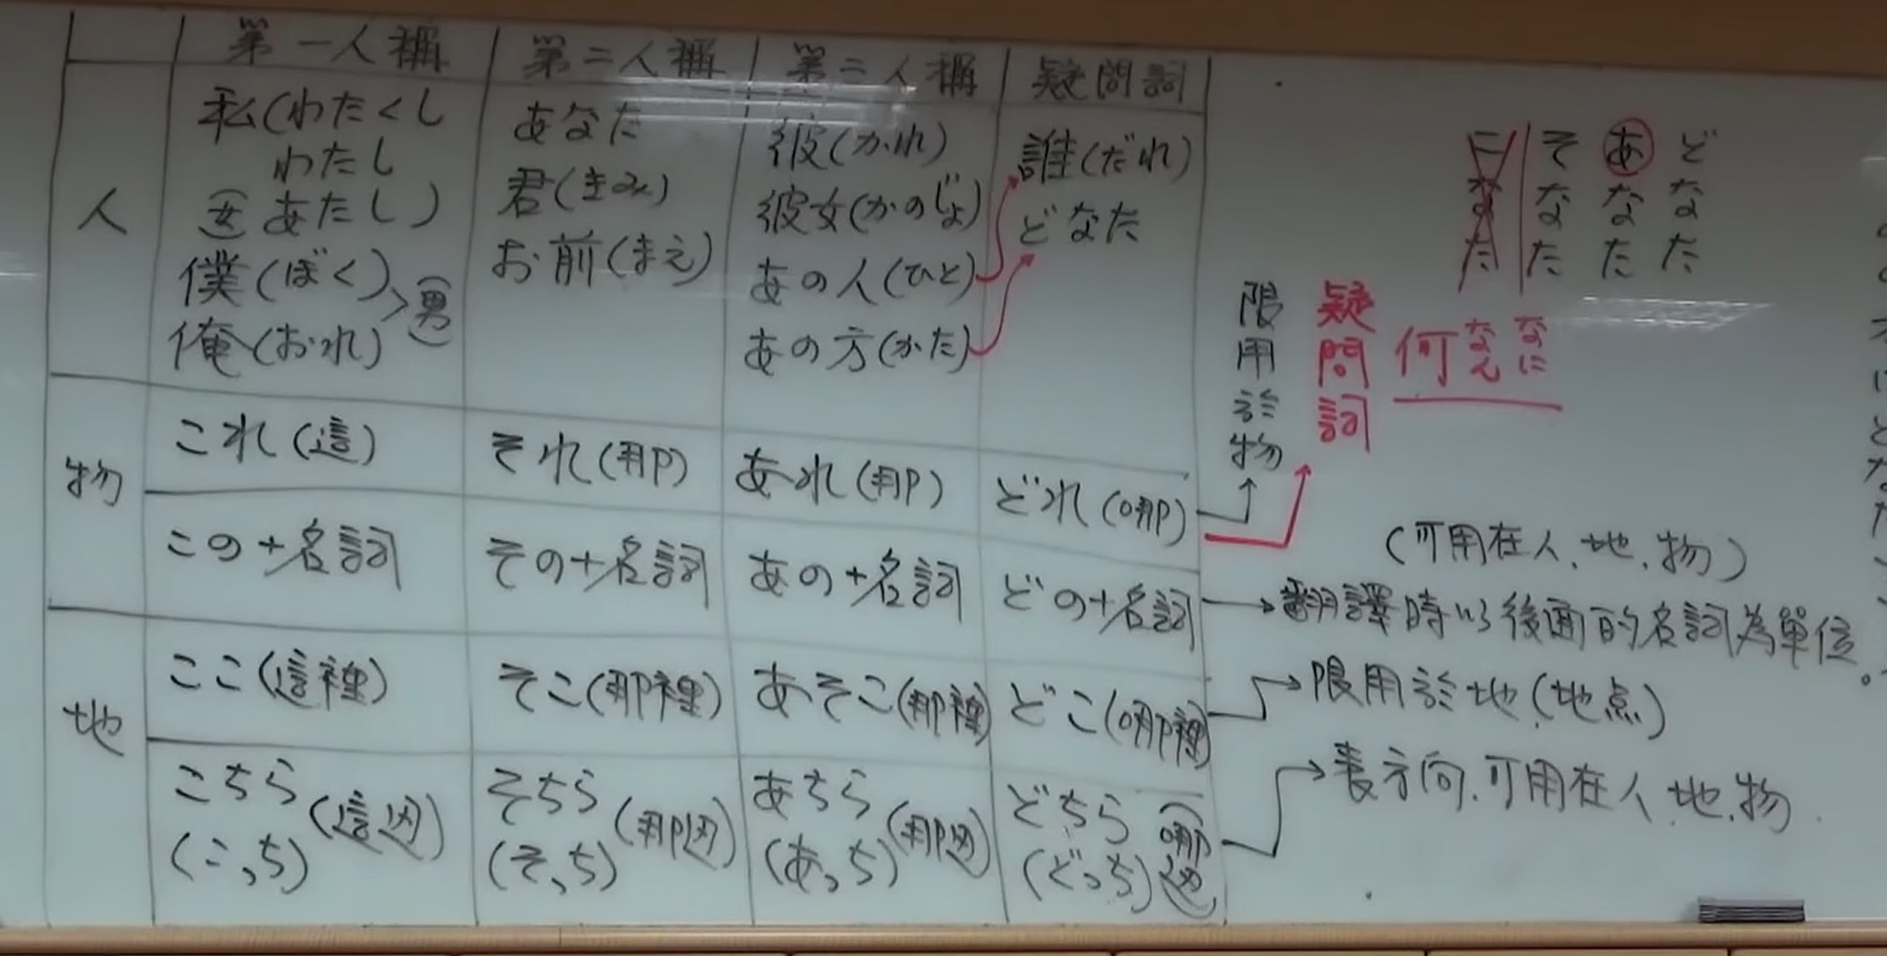 第一人稱 第二人稱 第三人稱 疑問詞
人
私(わたくし
わたし
女 あたし)
僕(ぼく)
俺(おれ)
>男
あなた
君(きみ)
お前(まえ)
彼(かれ)
彼女(かのじょ)
あの人(ひと)
あの方(かた)
誰(だれ)
どなた
物
これ(這) それ(那) あれ(那) どれ(哪)
この+名詞 その+名詞 あの+名詞 どの+名詞
地
ここ(這裡) そこ(那裡) あそこ(那裡) どこ(哪裡)
こちら(這边) そちら(那边) あちら(那边) どちら(哪边)
(こっち) (そっち) (あっち) (どっち)
こなた
そなた
あなた
どなた
限用於物
疑問詞
何 なん なに
(可用在人、地、物)
→翻譯時以後面的名詞為單位。
→限用於地(地点)
→表方向,可用在人、地、物